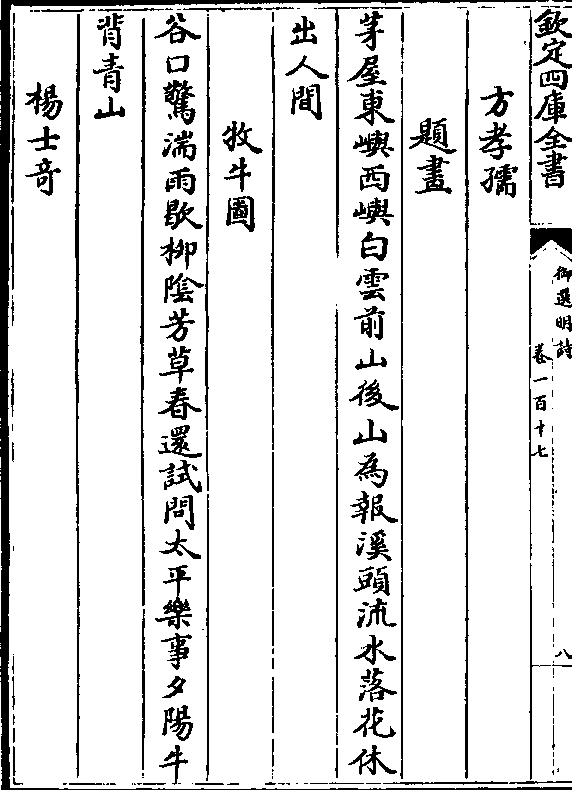 欽定四庫全書
御選明詩
卷一百十七
八
方孝孺
題畫
茅屋東嶼西嶼白雲前山後山為報溪頭流水落花休
出人間
牧牛圖
谷口驚湍雨歇柳陰芳草春還試問太平樂事夕陽牛
背青山
楊士竒